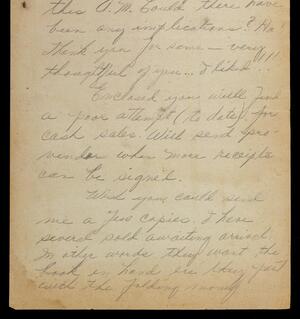 this A.M. Could there have
been any implications? Ha!
Thank you for some - very
thoughtful of you...I liked...!!!
Enclosed you will find
a poor attempt (to date) for
cash sales. Will send pro
vendor when more receipts
can be signed.
Wish you could send
me a few copies. I have
several sold awaiting arrival.
In other words they want the
book in hand ere they part
with the folding money